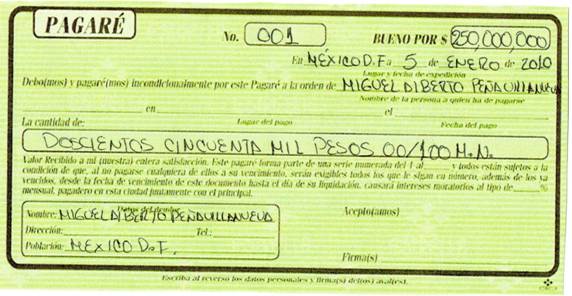 PAGARÉ
No. 001 BUENO POR $ 250,000,000
En MÉXICO D.F a 5 de ENERO de 2010
Lugar y fecha de expedición
Debo(mos) y pagaré(mos) incondicionalmente por este Pagaré a la orden de MIGUEL ALBERTO PEÑA VILLANUEVA
Nombre de la persona a quien ha de pagarse
en el
Lugar del pago Fecha del pago
La cantidad de:
DOSCIENTOS CINCUENTA MIL PESOS 00/100 M.N.
Valor Recibido a mi (nuestra) entera satisfacción. Este pagaré forma parte de una serie numerada del 1 al y todos están sujetos a la
condición de que, al no pagarse cualquiera de ellos a su vencimiento, serán exigibles todos los que le sigan en número, además de los ya
vencidos, desde la fecha de vencimiento de este documento hasta el día de su liquidación, causará intereses moratorios al tipo de %
mensual, pagadero en esta ciudad juntamente con el principal.
Datos del deudor
Nombre: MIGUEL ALBERTO PEÑA VILLANUEVA Acepto(amos)
Dirección: Tel.:
Población: MEXICO D.F.
Firma(s)
Escriba al reverso los datos personales y firma(s) del(os) aval(es).